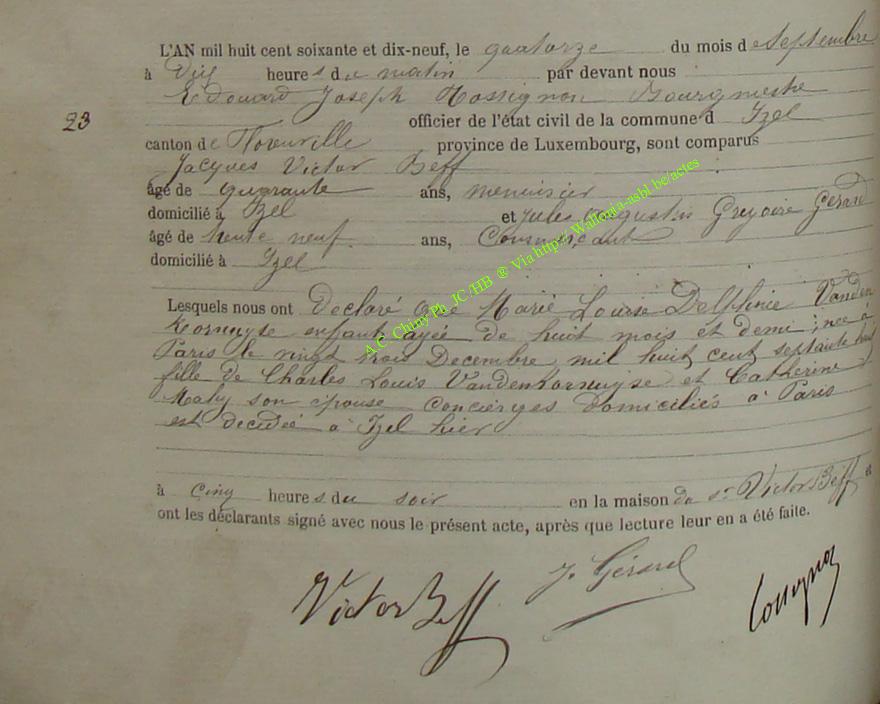 L'AN mil huit cent soixante et dix-neuf, le quatorze du mois de Septembre
à Dix heures du matin par devant nous
Edouard Joseph Rossignon Bourgmestre
23 officier de l'état civil de la commune d Izel
canton de Florenville province de Luxembourg, sont comparus
Jacques Victor Beff
âgé de quarante ans, menuisier
domicilié à Izel et Jules Augustin Gregoire Gérard
âgé de trente neuf ans, Commerçant
domicilié à Izel
Lesquels nous ont Déclaré que Marie Louise Delphine Vanden
Kornuyse enfant agée de huit mois et demi, née à
Paris le vingt trois Decembre mil huit cent septante huit
fille de Charles Louis VandenKornuyse et Catherine
Mahy son épouse concierges domiciliés à Paris
est décédée à Izel hier
à cinq heures du soir en la maison du sr Victor Beff et
ont les déclarants signé avec nous le présent acte, après que lecture leur en a été faite.
Victor Beff J. Gérard Rossignon
A.C Chiny Ph JC /HB ® Via https Wallonia-asbl.be/actes